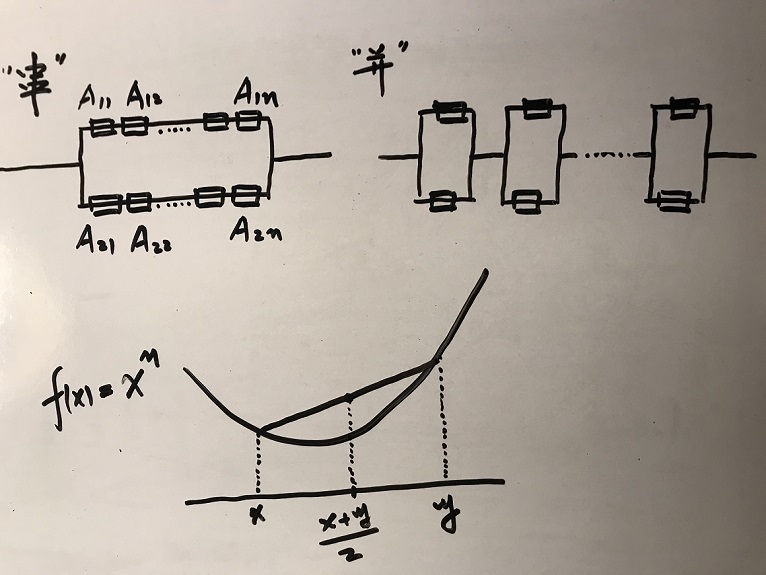 "串"
"并"
A₁₁ A₁₂ ..... A₁ₙ
A₂₁ A₂₂ ..... A₂ₙ
f(x) = xⁿ
x
x+y
2
y